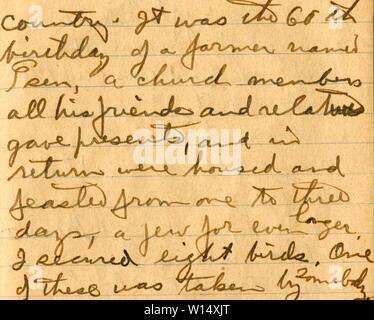 country. It was the 60th
birthday of a farmer named
Esen, a church member
all his friends and relatives
gave presents, and in
return were housed and
feasted from one to three
days, a few for even longer.
I secured eight birds. One
of these was taken by somebody
alamy
alamy
W14XJT